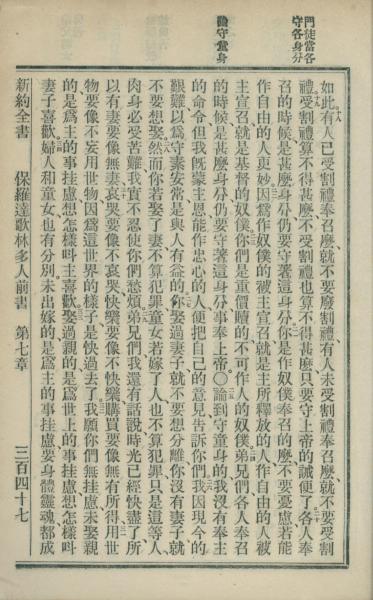 門徒當各
守各身分
論守童身
如此有人已受割禮奉召麽就不要廢割禮有人未受割禮奉召麽就不要受割
禮受割禮算不得甚麽不受割禮也算不得甚麽只要守上帝的誡便了各人奉
召的時候是甚麽身分仍要守著這身分你是作奴僕奉召的麽不要憂慮若能
作自由的人更妙因爲作奴僕的被主宣召就是主所釋放的人作自由的人被
主宣召就是基督的奴僕你們是重價贖的不可作人的奴僕弟兄們各人奉召
的時候是甚麽身分仍要守著這身分事奉上帝○論到守童身的我沒有奉主
的命令但我旣蒙主恩能作忠心的人便把自己的意見告訴你們我因現今的
艱難以爲守素安常是與人有益的你娶過妻子就不要想分離你沒有妻子就
不要想娶然而你若娶了妻不算犯罪童女若嫁了人也不算犯罪只是這等人
肉身必受苦難我實不忍使你們愁煩弟兄們我還有話說時光已經快盡了所
以有妻要像無妻哀哭要像不哀哭快樂要像不快樂購買要像無有所得用世
物要像不妄用世物因爲這世界的樣子是快過去了我願你們無掛慮未娶親
的是爲主的事掛慮想怎樣呌主喜歡娶過親的是爲世上的事掛慮想怎樣呌
妻子喜歡婦人和童女也有分別未出嫁的是爲主的事掛慮要身體靈魂都成
新約全書 保羅達歌林多人前書 第七章 三百四十七